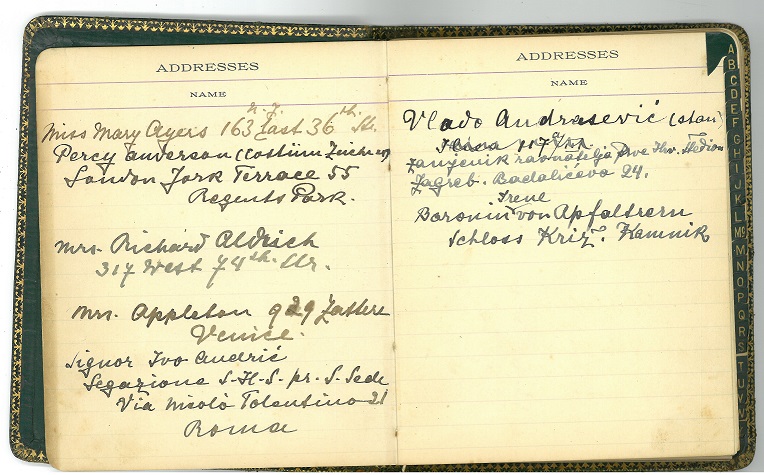 ADDRESSES
NAME
N. Y.
Miss Mary Ayers 163 East 36th Str.
Percy Anderson (Costüm Zeichner)
London York Terrace 55
Regents Park.
Mrs. Richard Aldrich
317 West 74th Str.
Mrs. Appleton 929 Zattere
Venice.
Signor Ivo Andrić
Legazione S-H-S- pr. S. Sede
Via Nicolò Tolentino 21
Roma
ADDRESSES
NAME
Vlado Andrasević (stan)
117
Zamjenik ravnatelja Prve Hrv. Štedion
Zagreb. Badalićeva 24.
Irene
Baronin von Apfaltrern
Schloss Križ. Kamnik
A
B
C
D
E
F
G
H
I
J
K
L
Mc
M
N
O
P
Q
R
S
T
U
V
W